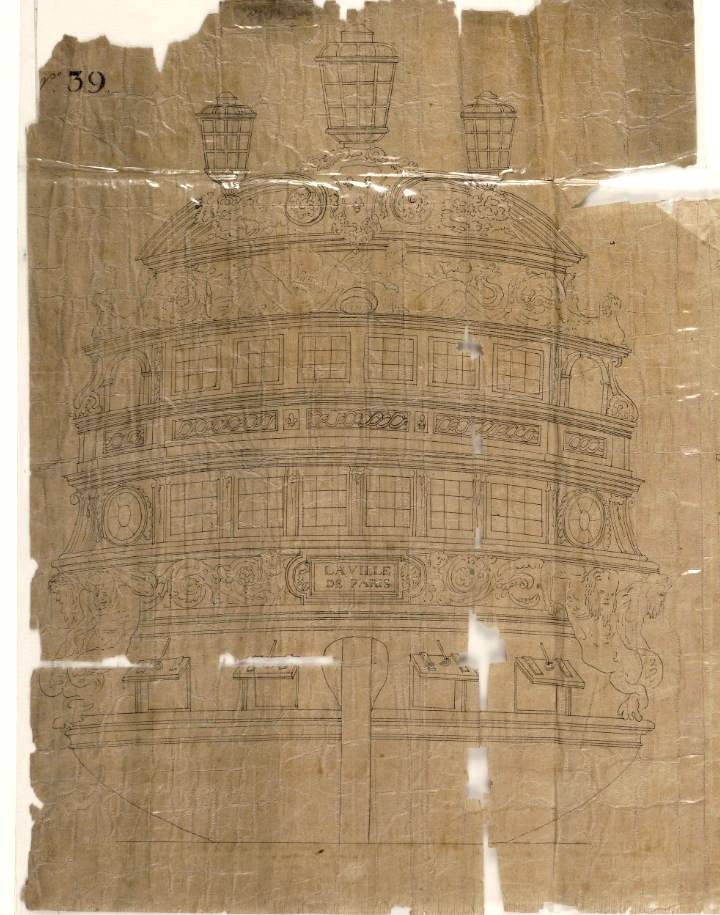 39
LA VILLE
DE PARIS